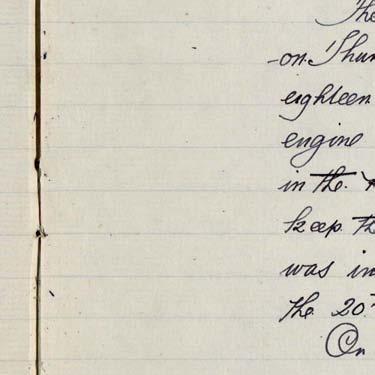 The
on Thur
eighteen
engine
in the
keep the
was in
the 20th
On